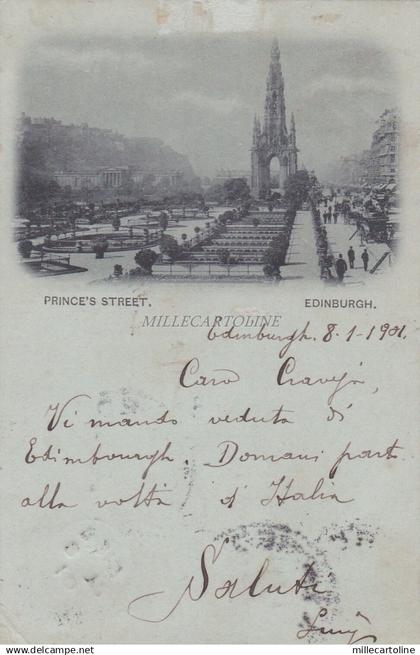 PRINCE'S STREET. EDINBURGH.
MILLECARTOLINE
Edinburgh. 8-1-1901.
Caro
Vi mando veduta di
Edimbourgh. Domani part
alla volta d'Italia
Saluti
Luig
www.millecartoline.com
millecartoline